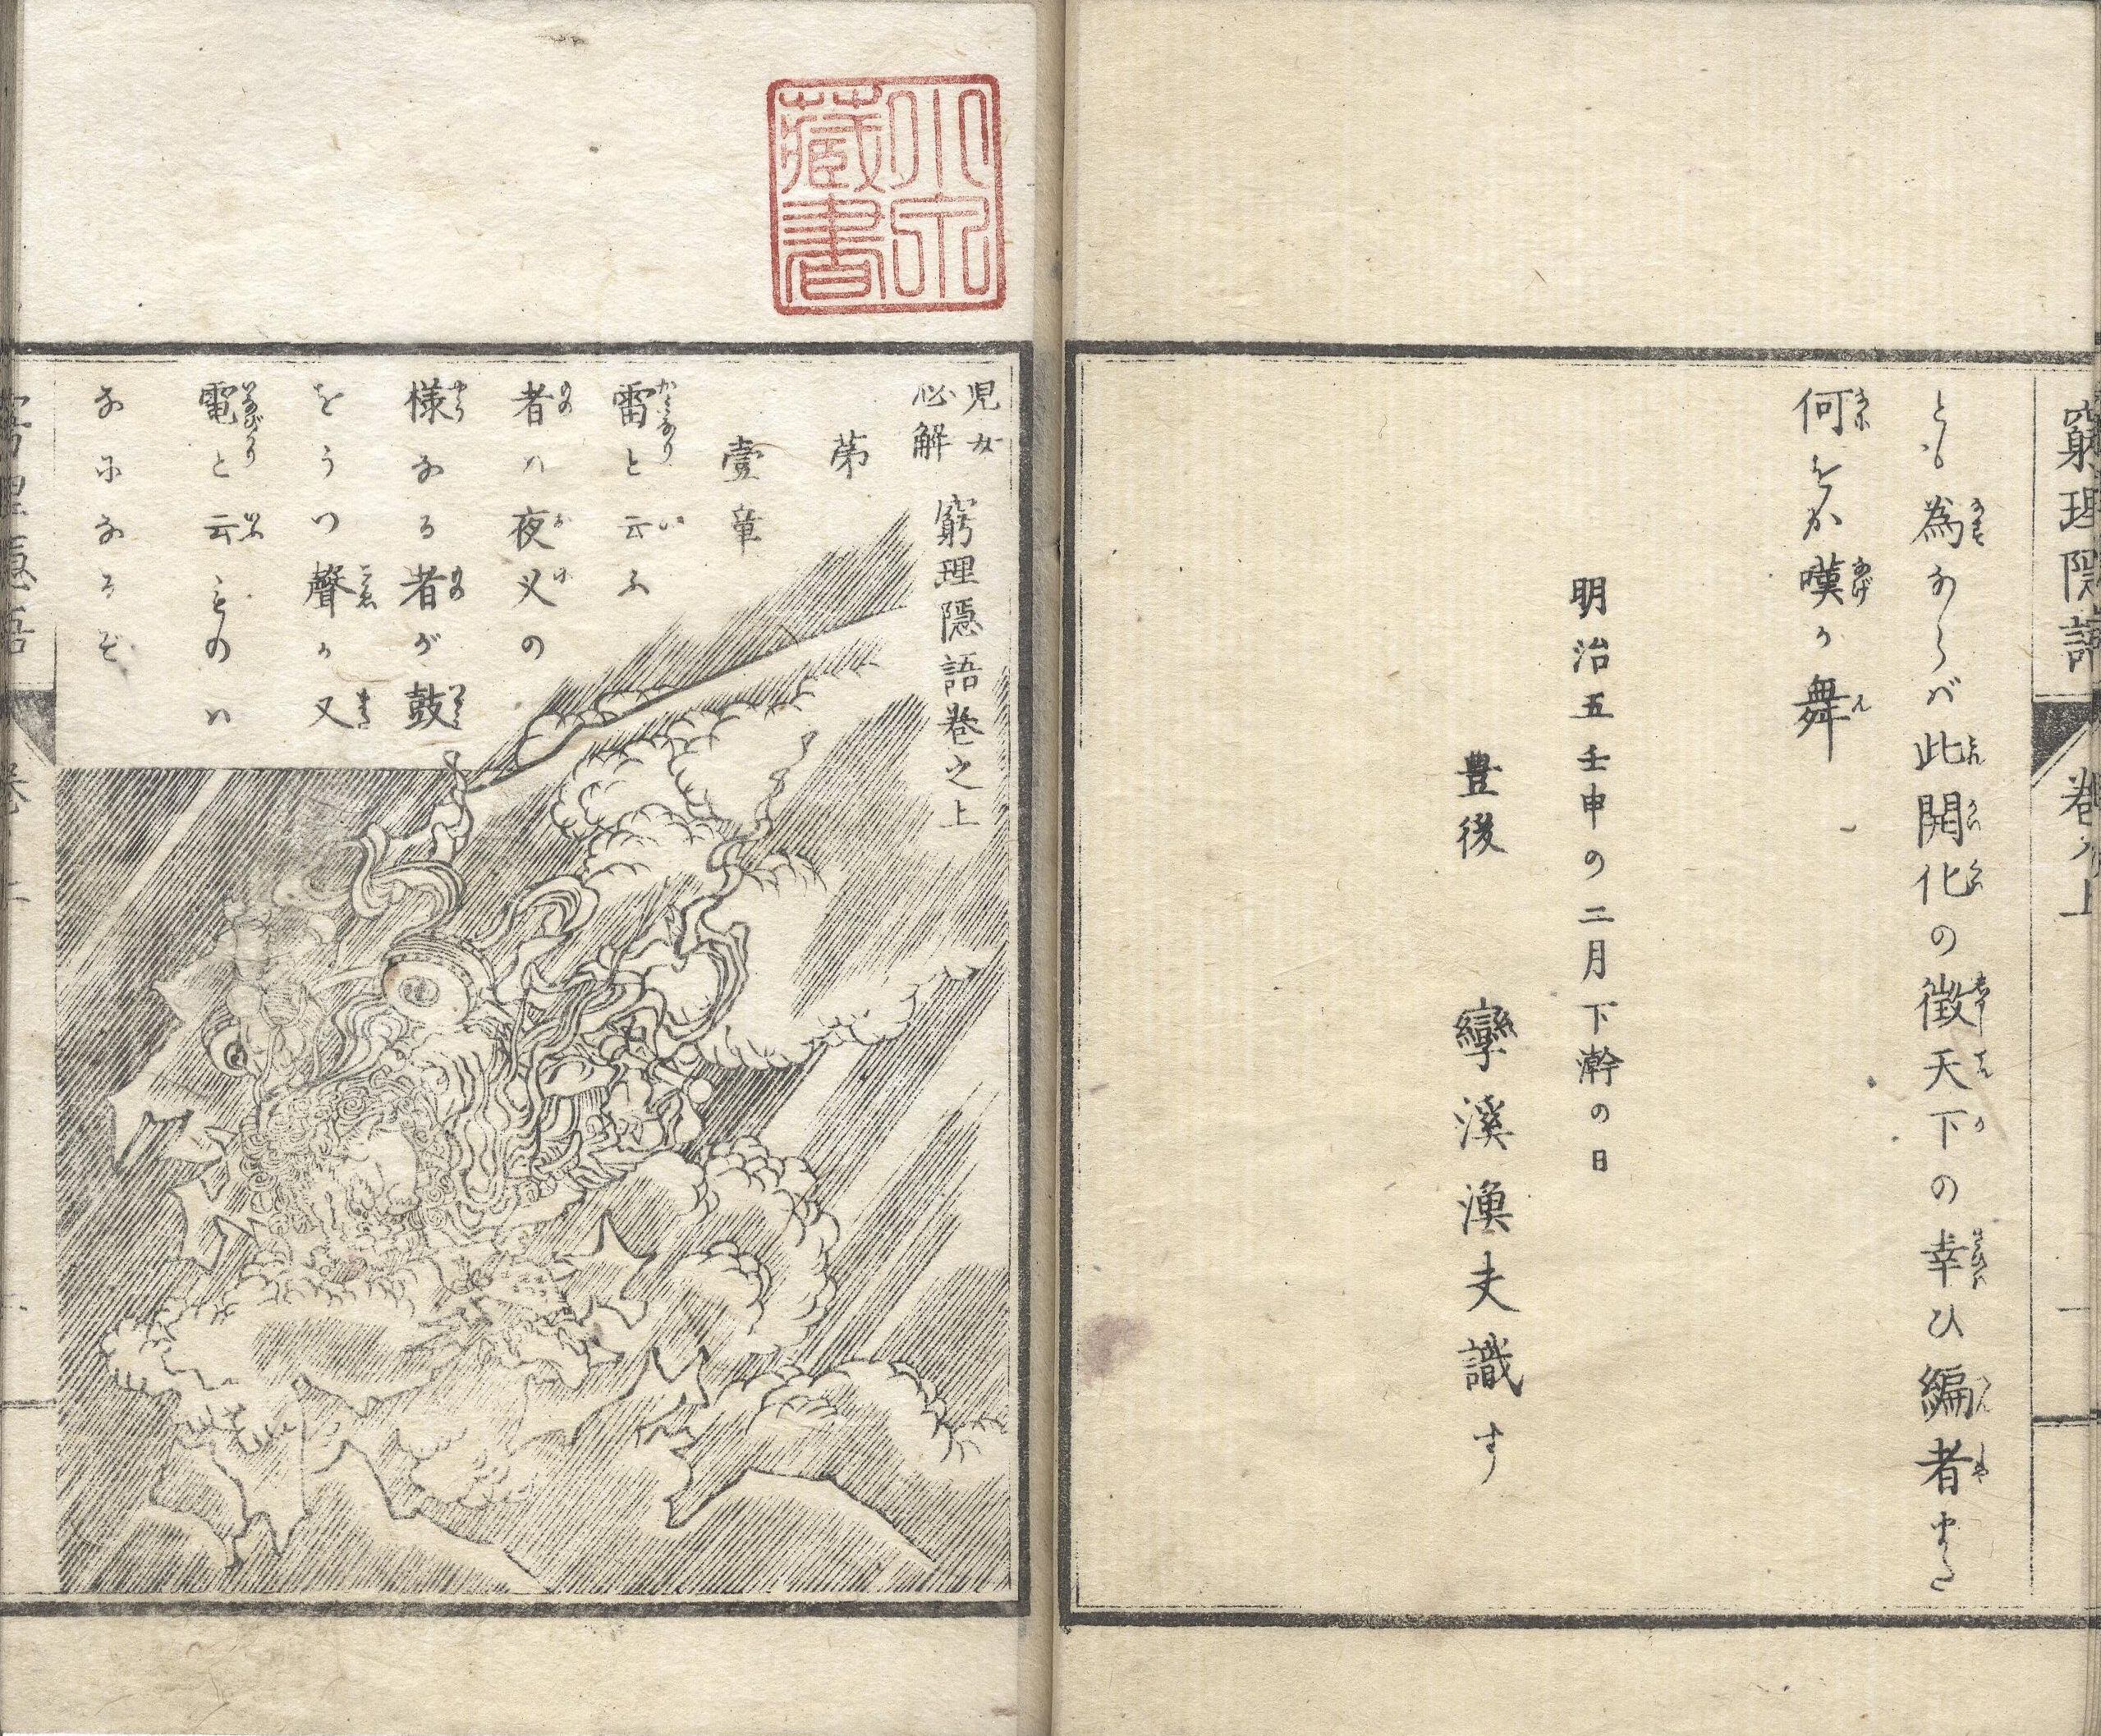 窮理隠語
巻之上
一
とも為ならば此開化の徴天下の幸ひ編者また
何をか嘆か舞
明治五壬申の二月下澣の日
豊後 孿溪漁夫識す
小泉
藏書
児女
必解
窮理隠語巻之上
苐
壹章
雷と云ふ
者ハ夜叉の
様なる者が鼓
をうつ聲か又
電と云ものハ
なになるぞ